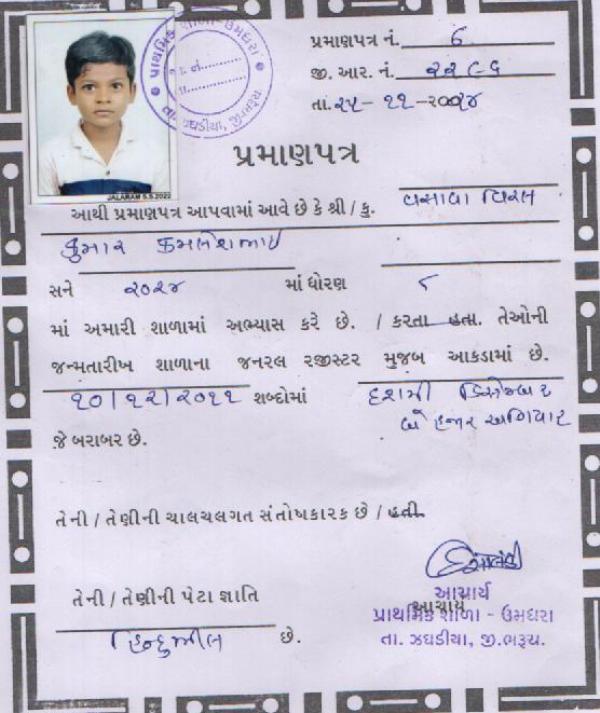 પ્રાથમિક શાળા - ઉમધરા
જા. નં.
તા. ઝઘડીયા, જી.ભરૂચ
JALARAM 5.5.2022
પ્રમાણપત્ર નં. 6
જી. આર. નં. ૨૨૯૬
તા. ૨૫-૧૧-૨૦૨૪
પ્રમાણપત્ર
આથી પ્રમાણપત્ર આપવામાં આવે છે કે શ્રી / કુ. વસાવા વિરલ
કુમાર કમલેશભાઇ
સને ૨૦૨૪ માં ધોરણ ૮
માં અમારી શાળામાં અભ્યાસ કરે છે. / કરતા હતા. તેઓની
જન્મતારીખ શાળાના જનરલ રજીસ્ટર મુજબ આકડામાં છે.
૧૦/૧૨/૨૦૧૧ શબ્દોમાં દશમી ડિસેમ્બર
બે હજાર અગિયાર
જે બરાબર છે.
તેની / તેણીની ચાલચલગત સંતોષકારક છે / હતી.
આચાર્ય
તેની / તેણીની પેટા જ્ઞાતિ
આચાર્ય
પ્રાથમિક શાળા - ઉમધરા
હિન્દુભીલ છે.
તા. ઝઘડીયા, જી.ભરૂચ.